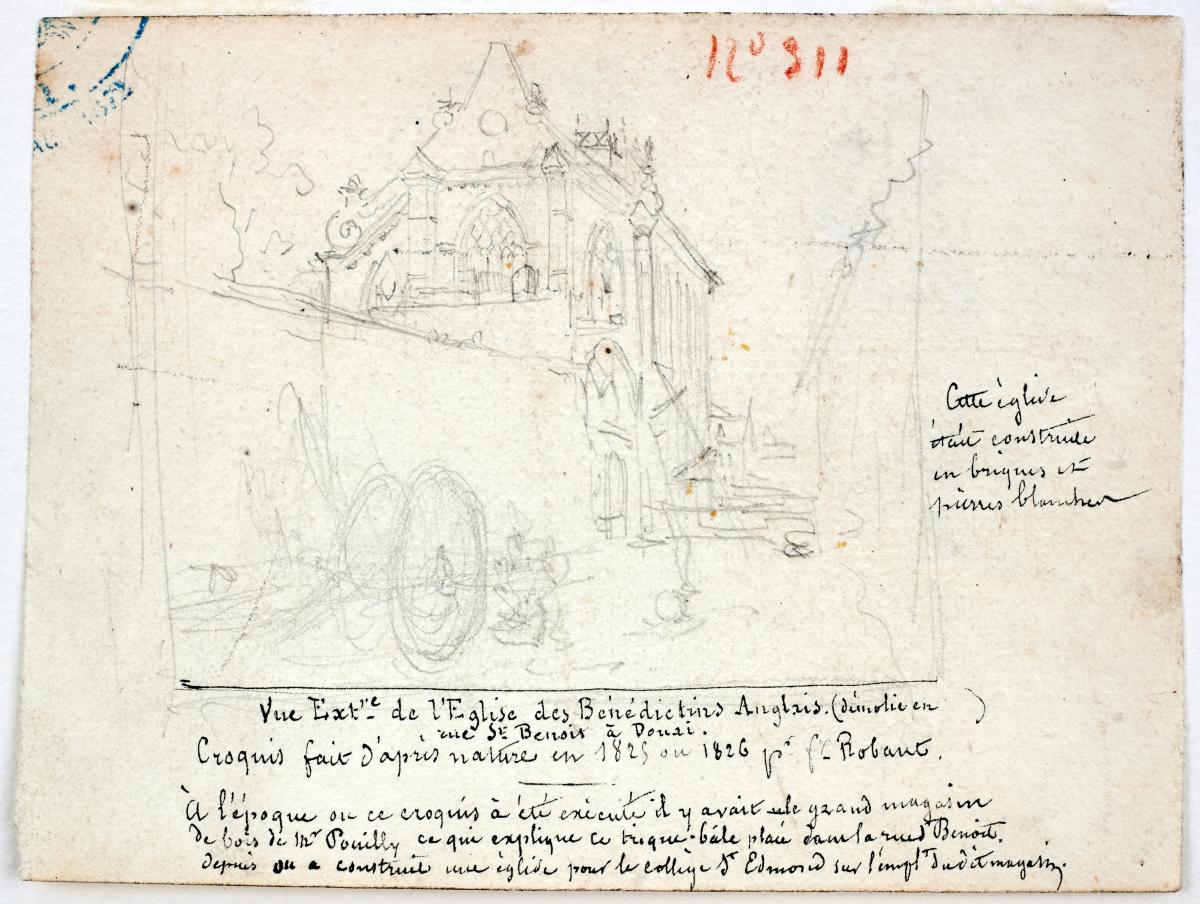 No 311
Cette église
était construite
en briques et
pierres blanches
Vue Extre de l'Eglise des Bénédictins Anglais. (démolie en )
rue St Benoit à Douai.
Croquis fait d'après nature en 1825 ou 1826 pr fx Robaut.
À l'époque ou ce croquis à été exécuté il y avait le grand magasin
de bois de Mr Pouilly ce qui explique ce trique-bale placé dans la rue St Benoit.
depuis on a construit une église pour le collège St Edmond sur l'emplt dudit magasin.